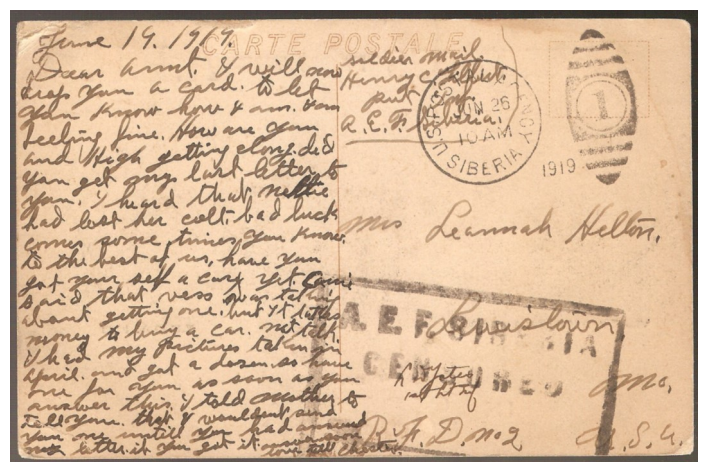 June 19. 1919.
CARTE POSTALE
Dear Aunt. I will now
drop you a card. to let
you know how I am. am
feeling fine. How are you
and High getting along. did
you get my last letter to
you. I heard that Nellie
had lost her colt. bad luck
comes some times you know.
to the best of us, have you
got your self a cary yet
said that vess was talking
about getting one. but it takes
money to buy a car. not talk.
I had my pictures taken in
april. and got a dozen. so have
one for you as soon as you
answer this. I told mother to
tell you. that I wouldent send
you one untill you had answerd
my letter. if you got it answer soon
love
soldier mail
Henry C.
A. E. F. Siberia.
U.S. POSTAL AGENCY
JUN 26
10 AM
SIBERIA
1919
1
Mrs Leannah Helton.
Lewistown.
Mo.
R. F. D no 2
U. S. A.
A. E. F. SIBERIA
CENSORED